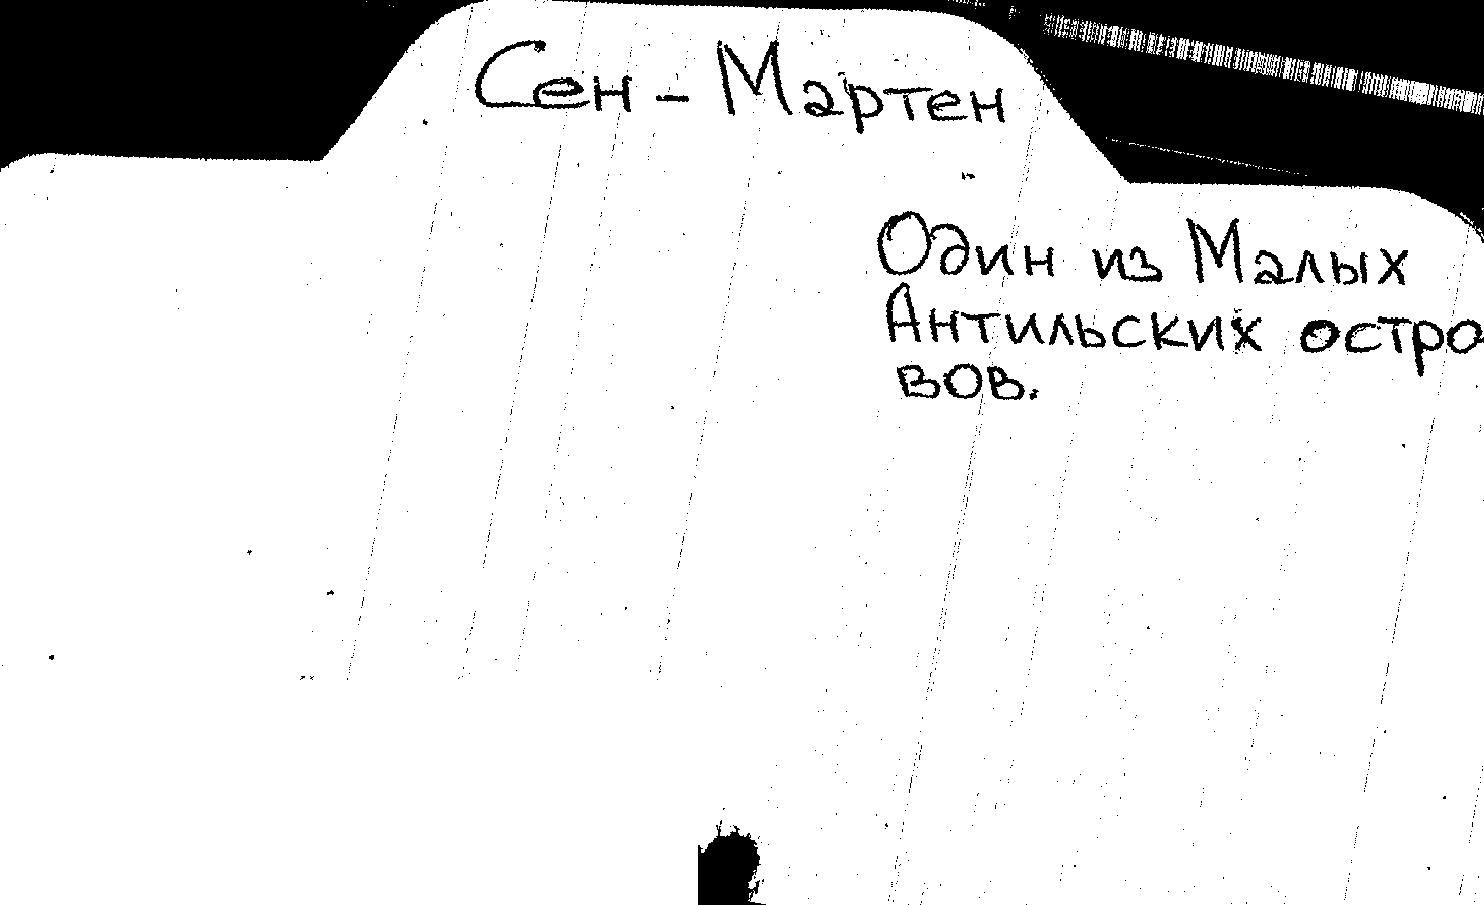 Сен - Мартен
Один из Малых
Антильских остро
вов.